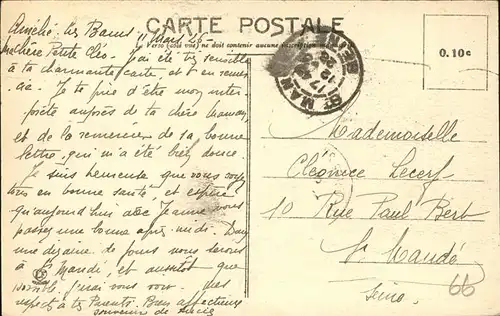 CARTE POSTALE
Verso (côté vue) ne doit contenir aucune inscription
0.10c
Amélie les Bains 11 Mars 26
Ma chère Petite Cléo. J'ai été très sensible
à ta charmante carte, et t'en remer-
cie. Je te prie d'être mon inter-
prète auprès de ta chère Maman
et de la remercier de sa bonne
lettre, qui m'a été bien douce.
Je suis heureuse que vous soyez
tous en bonne santé, et espère
qu'aujourd'hui avec Jeanne vous
passez une bonne après-midi. Dans
une dizaine de jours nous serons
à St Mandé, et aussitôt que
possible j'irai vous voir. Mes
respects à tes Parents. Bien affectueux
souvenir de
ST MAN
17
12
SEINE
Mademoiselle
Cléonice Lecerf
10 Rue Paul Bert
St Mandé
Seine
66